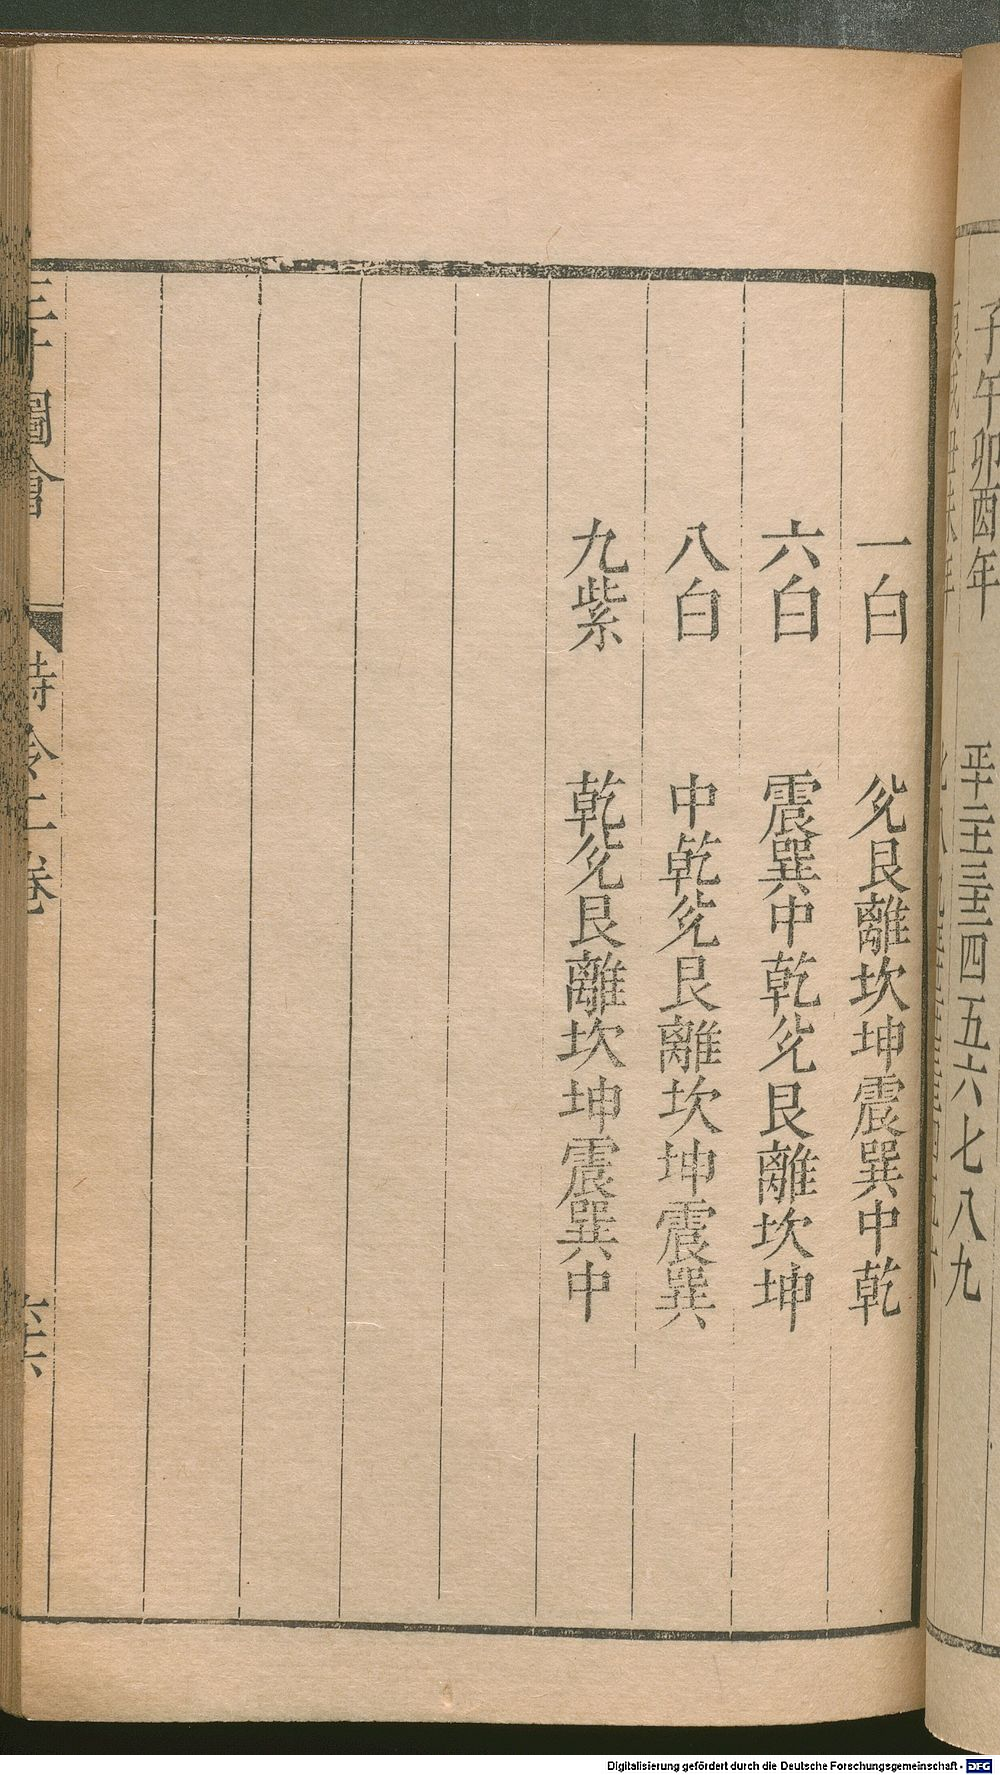 子午卯酉年 正十二十三十二四五六七八九
一白 兊艮離坎坤震巽中乾
六白 震巽中乾兊艮離坎坤
八白 中乾兊艮離坎坤震巽
九紫 乾兊艮離坎坤震巽中
三才圖會 時令二卷
Digitalisierung gefördert durch die Deutsche Forschungsgemeinschaft - DFG